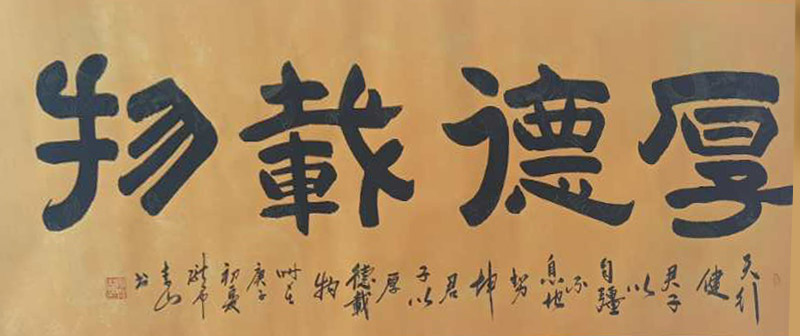 厚德載物
天行
健
君子
以
自彊
不
息地
勢
坤
君
子以
厚
德載
物
時在
庚子
初夏
書